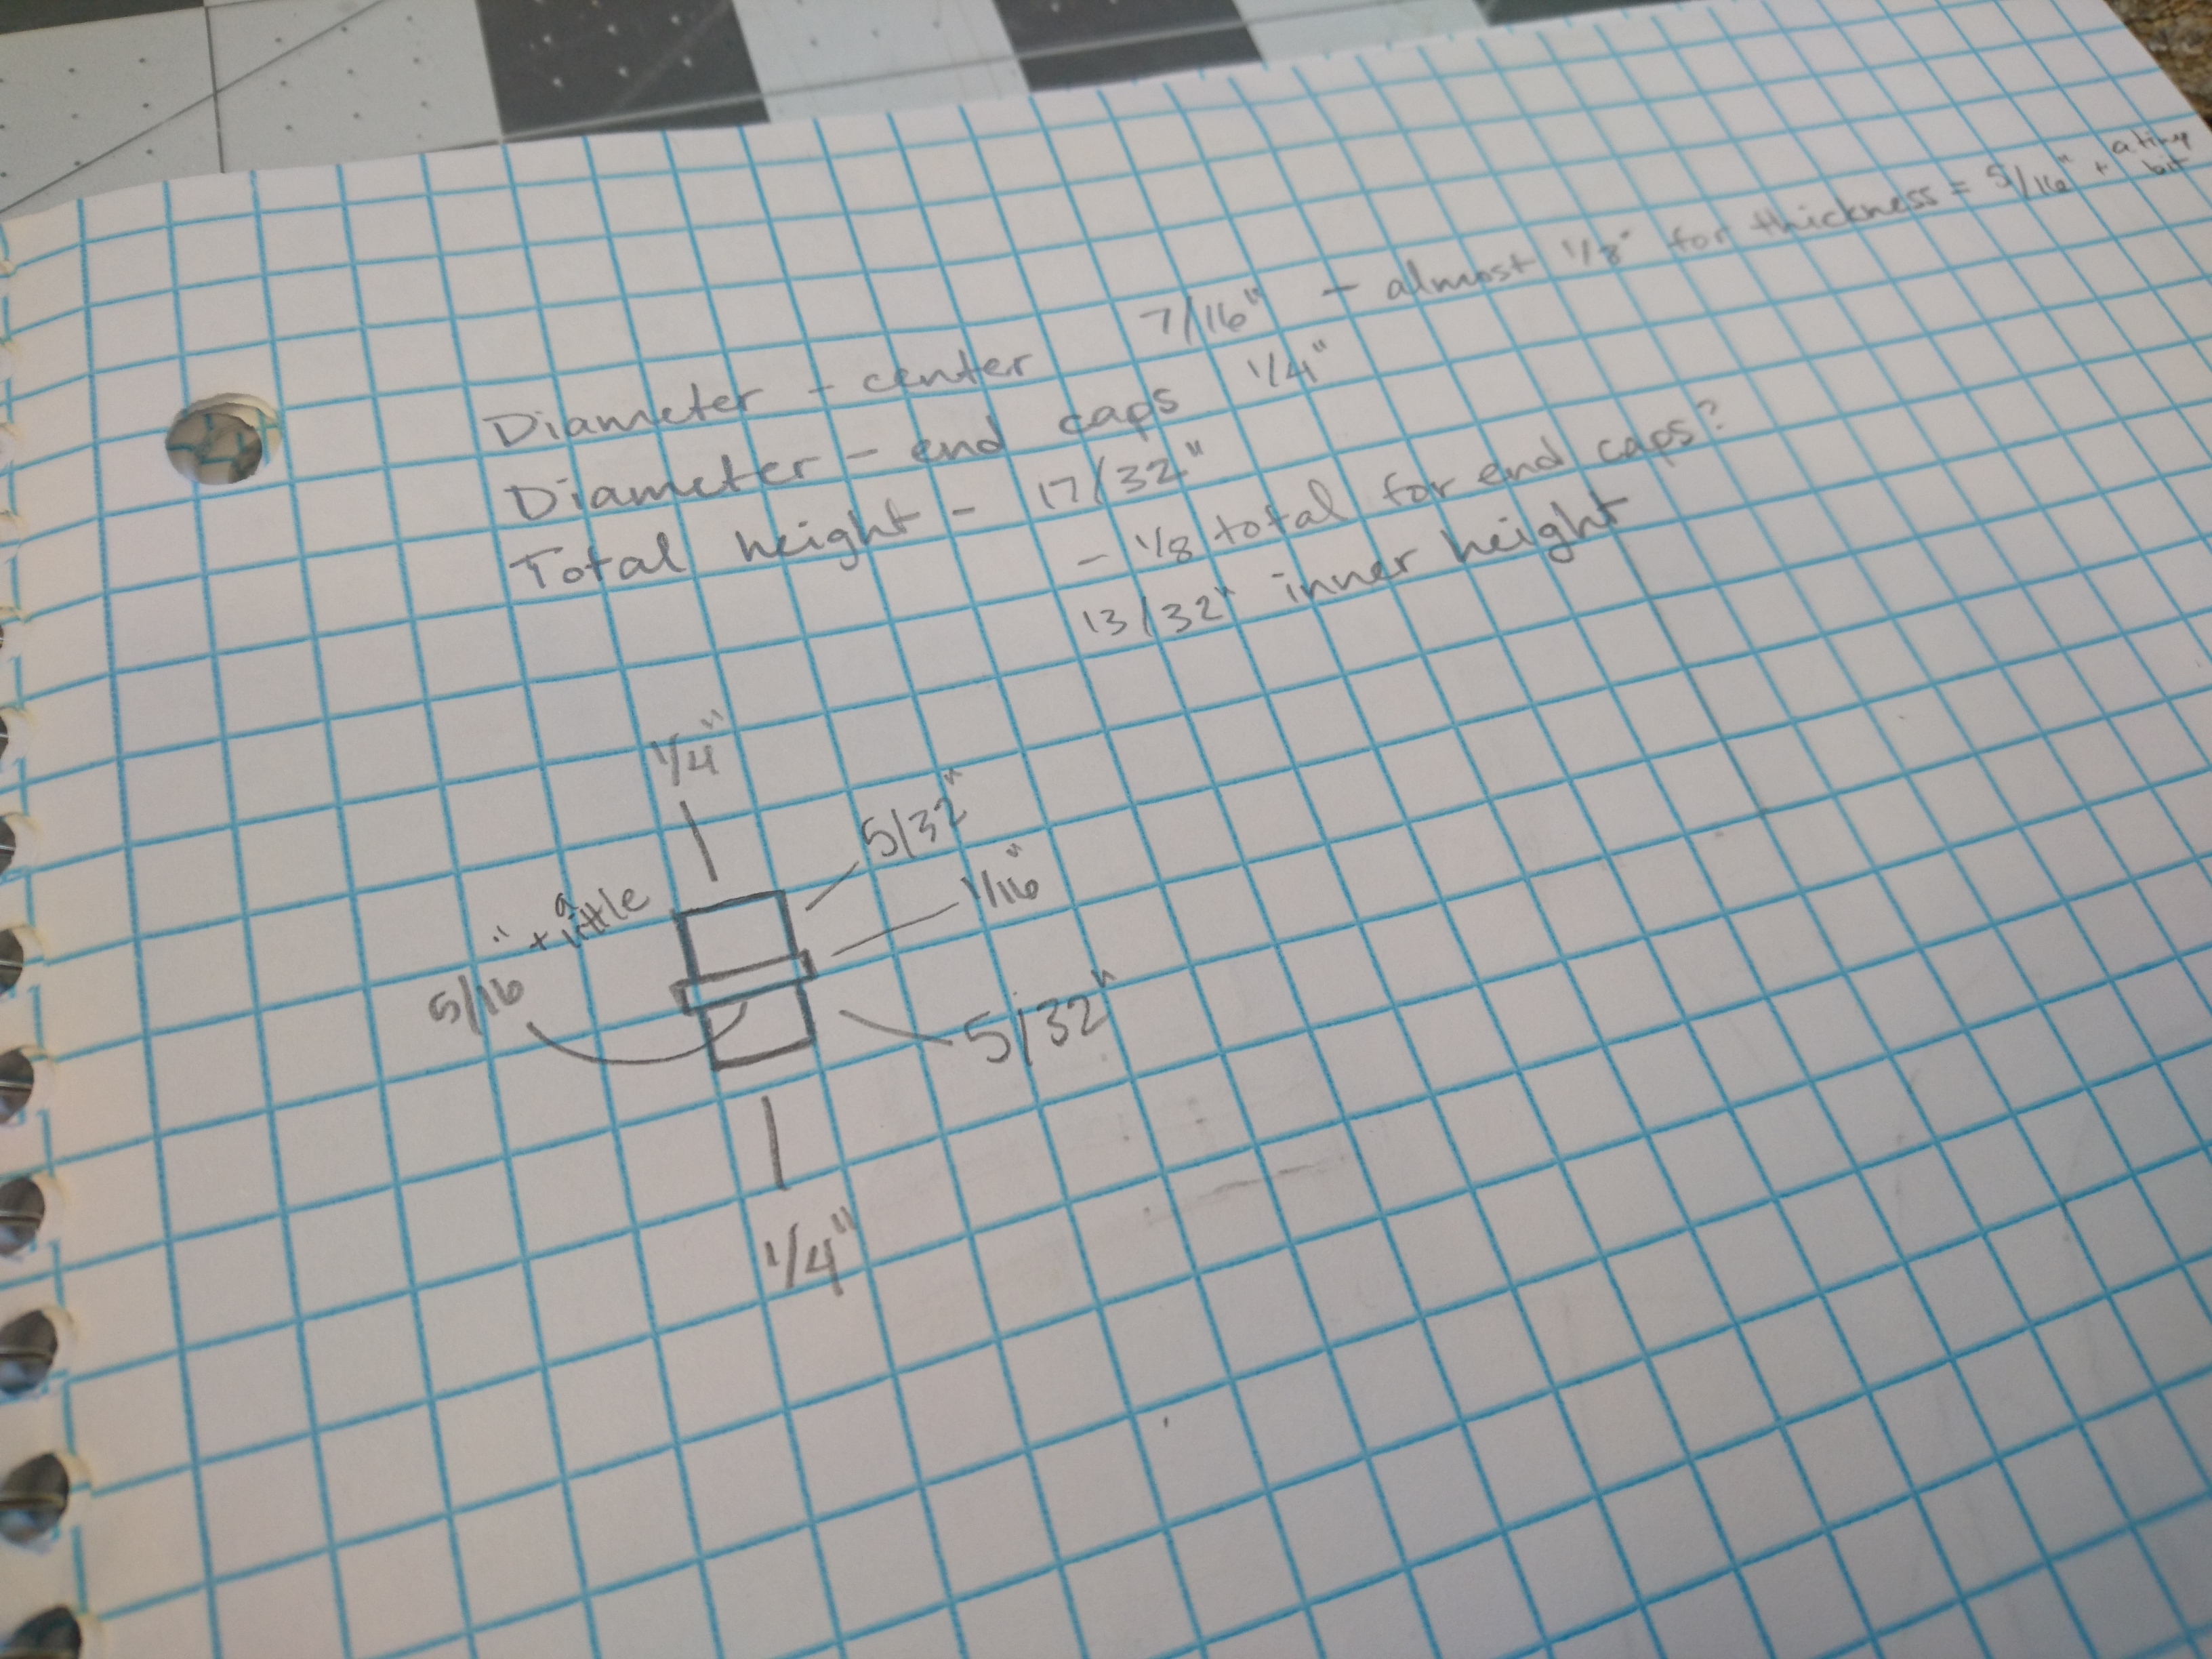 Diameter - center 7/16" - almost 1/8" for thickness = 5/16" + a tiny bit
Diameter - end caps 1/4"
Total height - 17/32"
- 1/8 total for end caps?
13/32" inner height
1/4"
5/32"
1/16"
5/16" + a little
5/32"
1/4"